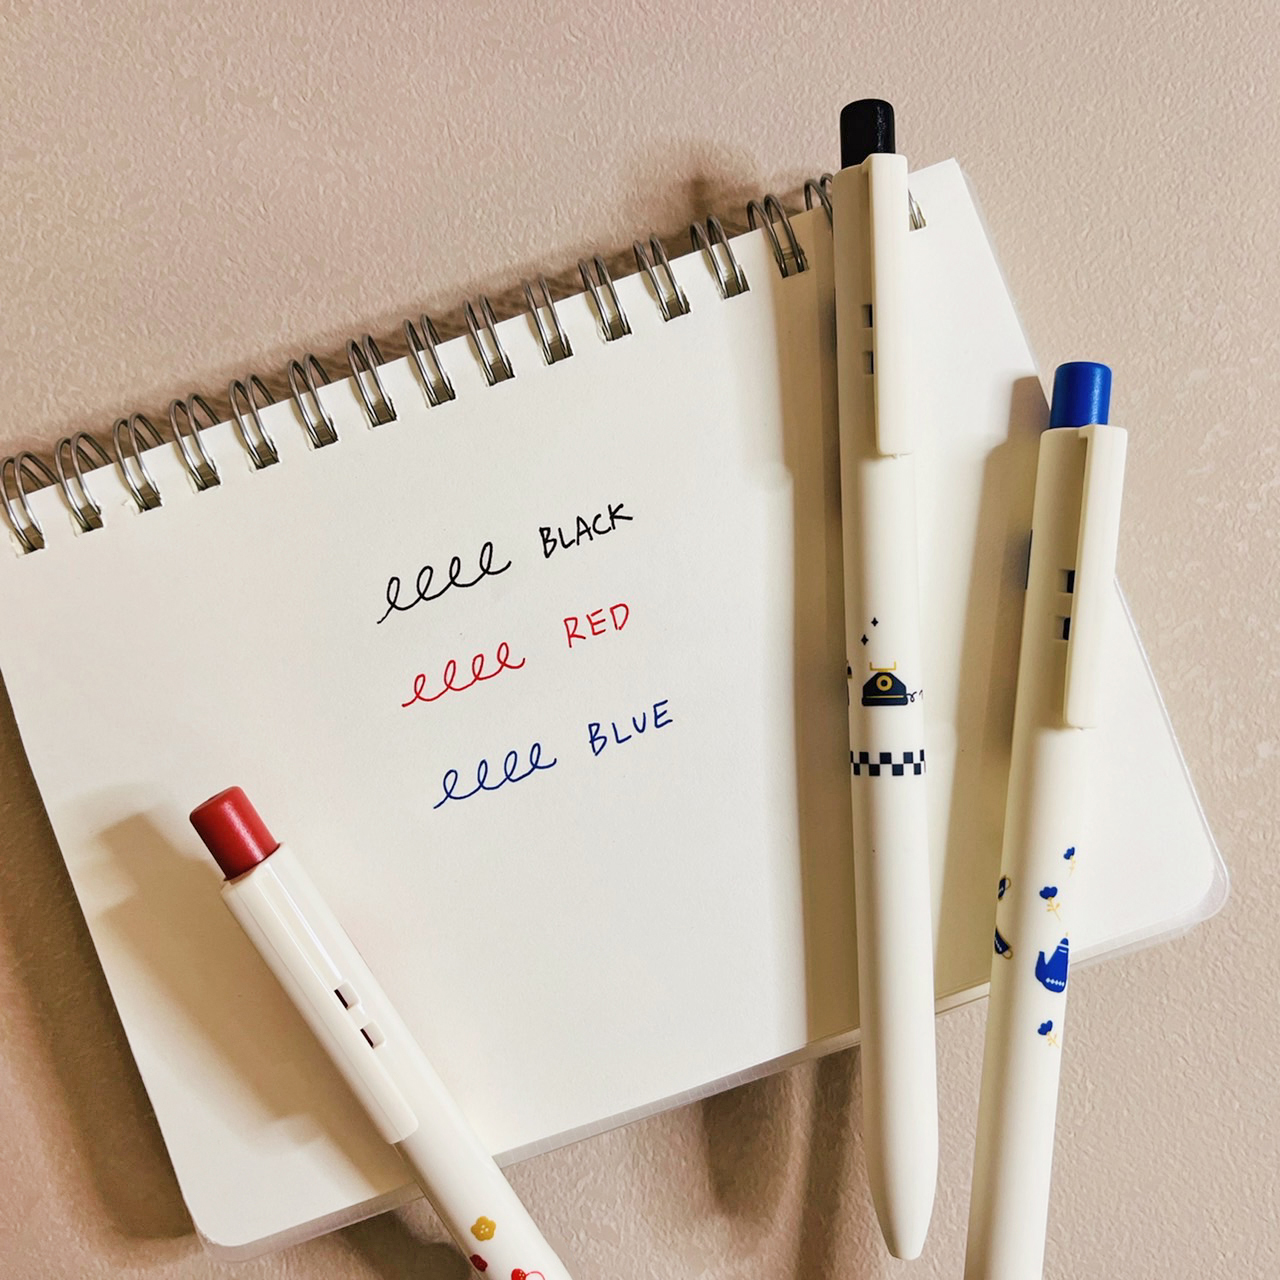 BLACK
RED
BLUE